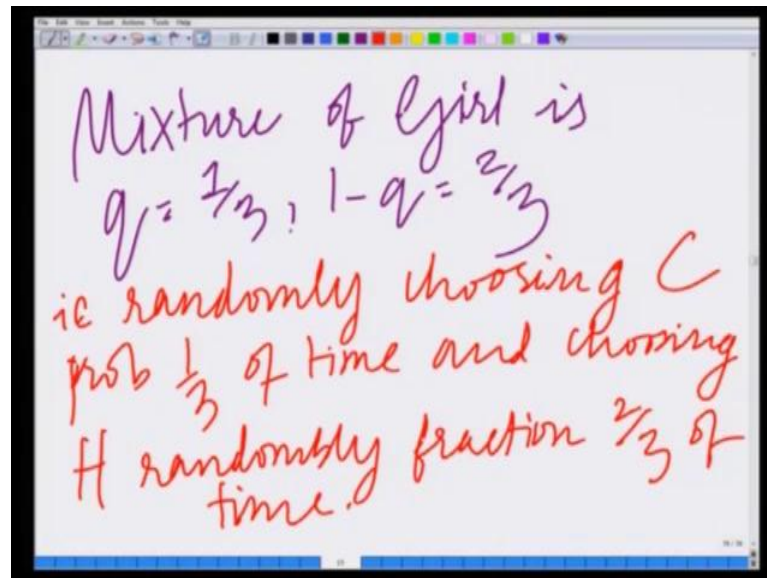 File Edit View Insert Actions Tools Help
Mixture of Girl is
q = 1/3, 1-q = 2/3
ie randomly choosing C
prob 1/3 of time and choosing
H randombly fraction 2/3 of
time.